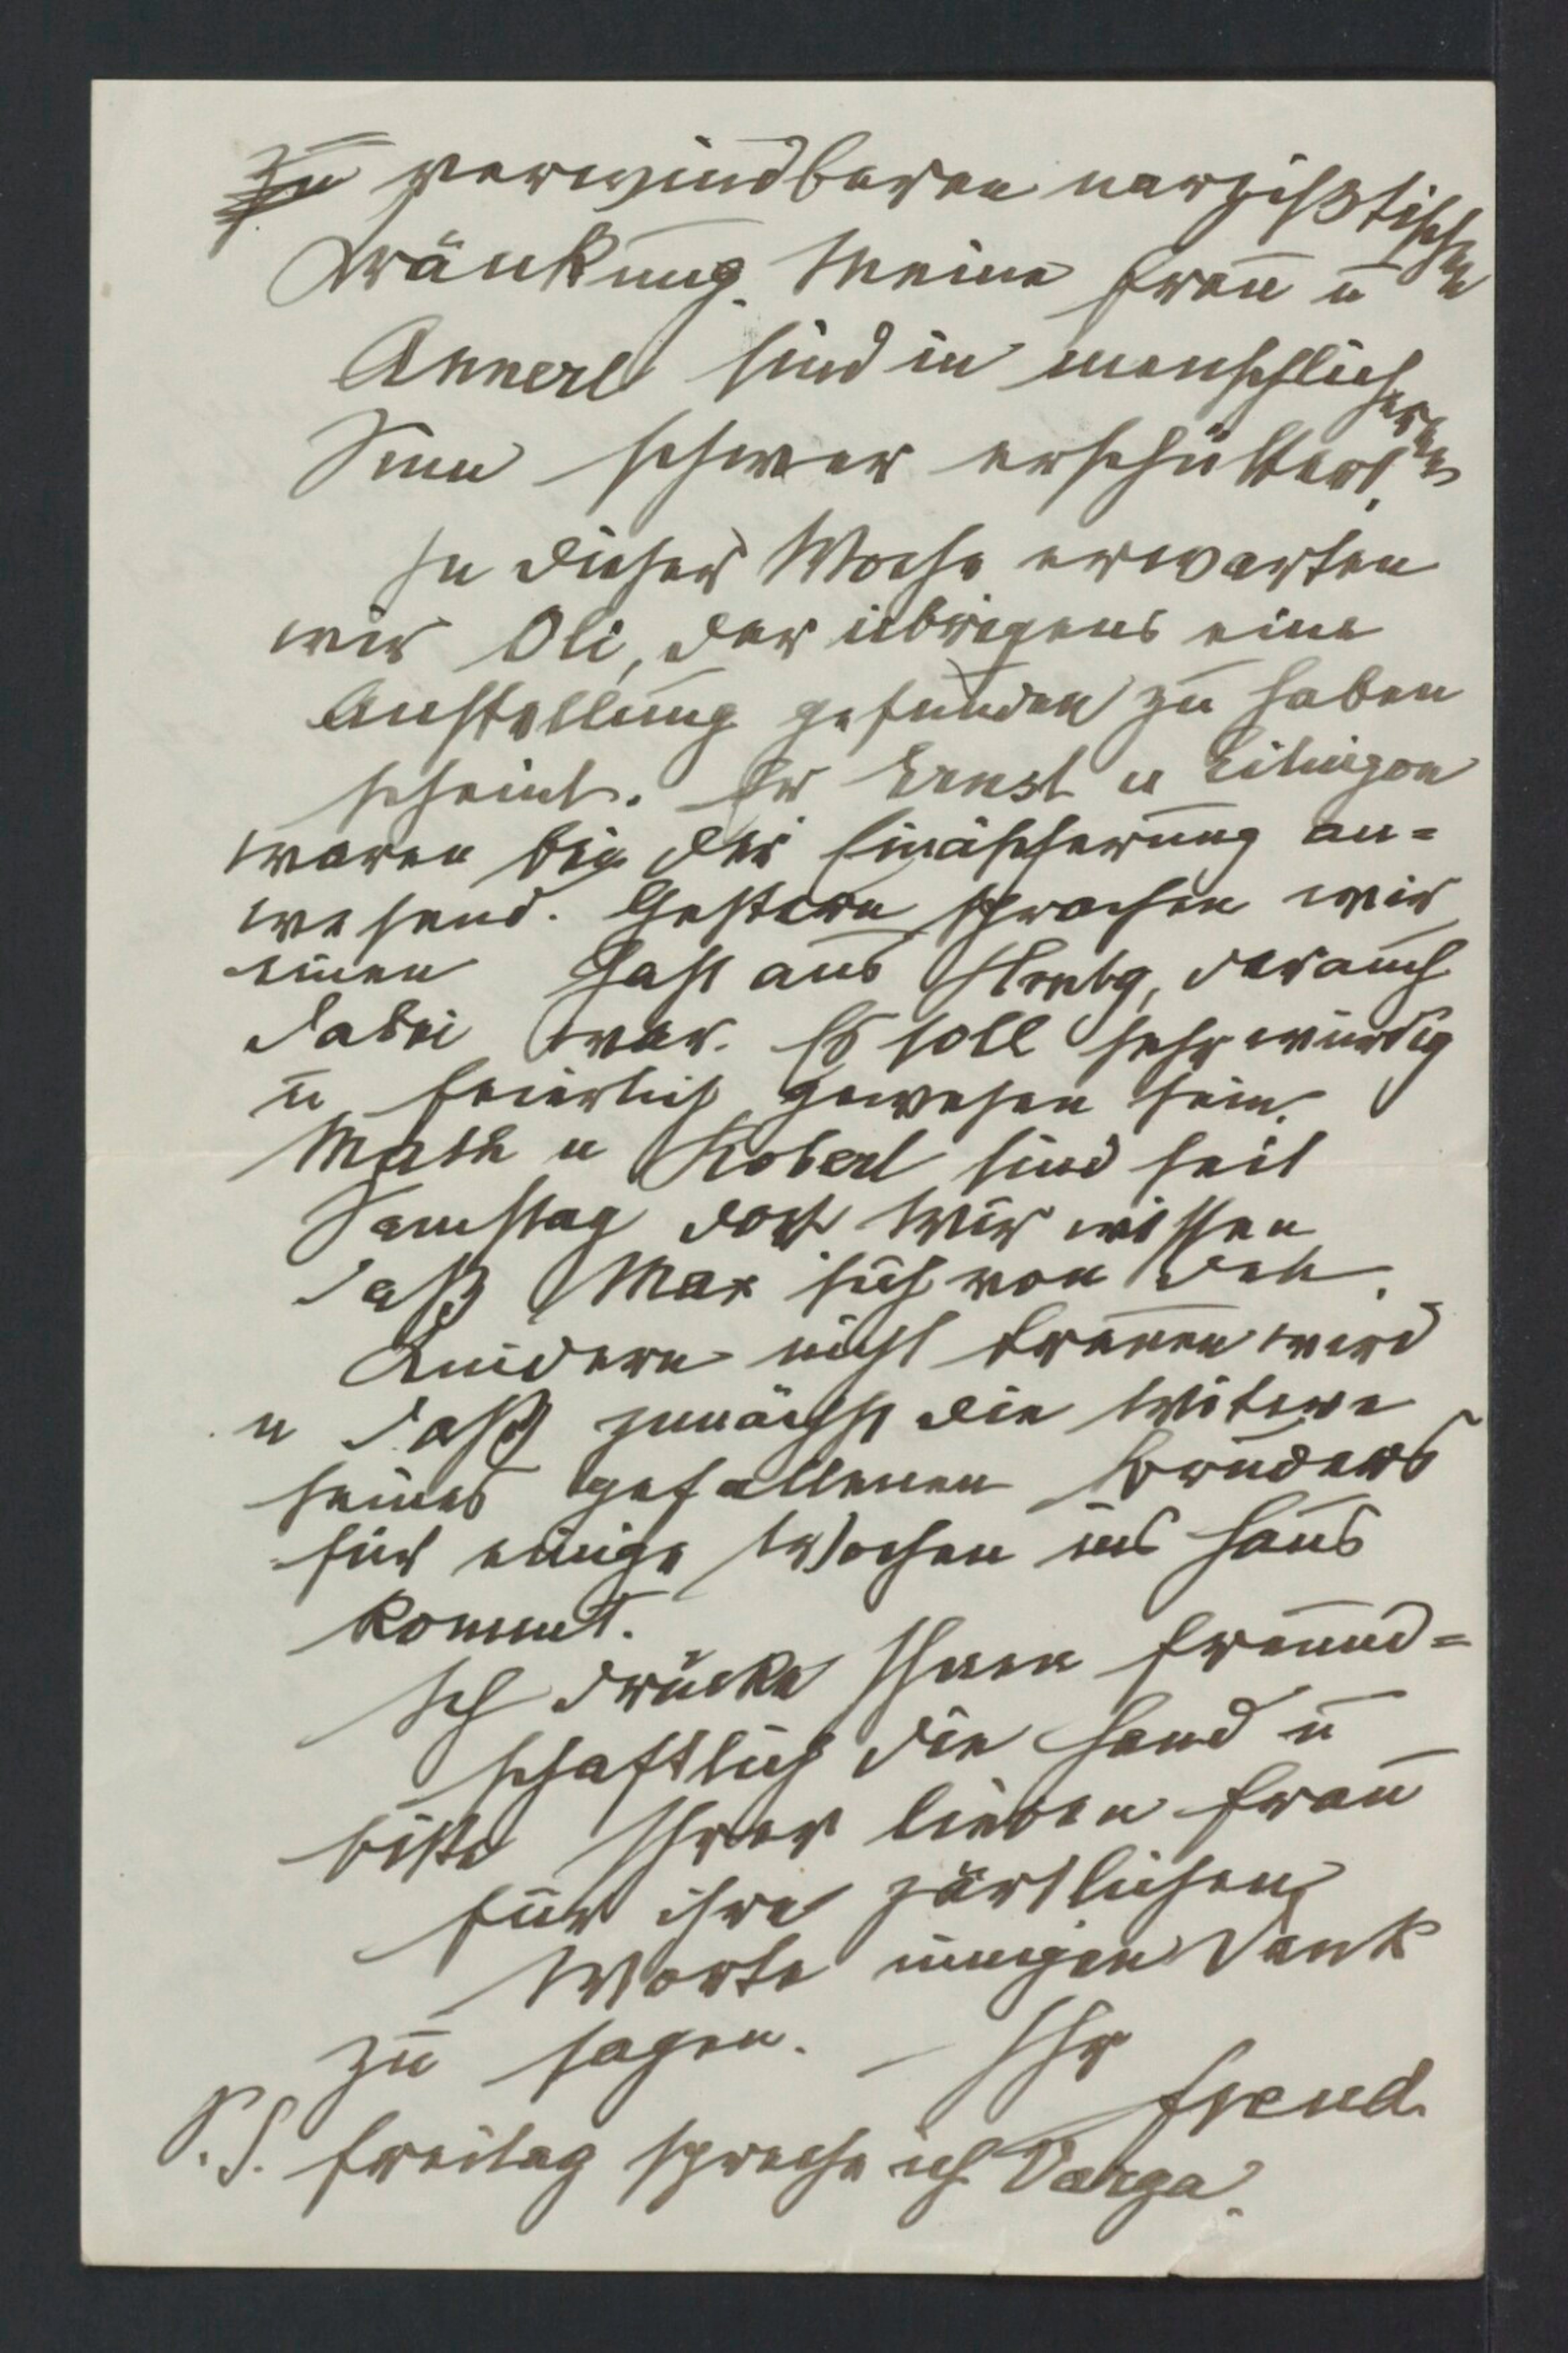 zu verwindbaren narzißtischen
Kränkung. Meine Frau u
Annerl sind in menschlicherem
Sinn schwer erschüttert.
In dieser Woche erwarten
wir Oli, der übrigens eine
Anstellung gefunden zu haben
scheint. Er Ernst u Eitingon
waren bei der Einäscherung an=
wesend. Gestern sprachen wir
einen Gast aus Hmbg, der auch
dabei war. Es soll sehr würdig
u feierlich gewesen sein.
Math u Robert sind seit
Samstag dort Wir wissen
daß Max sich von den
Kindern nicht trennen wird
u daß zunächst die Witwe
seines gefallenen Bruders
für einige Wochen ins Haus
kommt.
Ich drücke Ihnen freund=
schaftlich die Hand u
bitte Ihrer lieben Frau
für ihre zärtlichen
Worte innigen Dank
zu sagen. Ihr
Freud
P.S. Freitag spreche ich Varga.